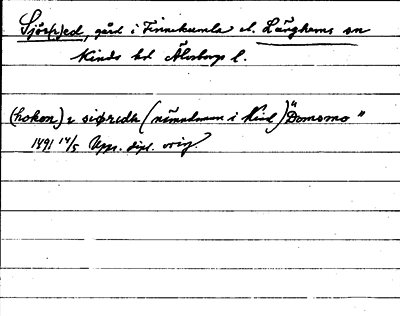 Sjör(y)ed, gård i Finnekumla el. Länghems sn
Kinds hd Älvsborgs l.
(hokon) i siøridh (nämndeman i Kind) "Domsmo"
1491 14/5 Upps. dipl. orig.